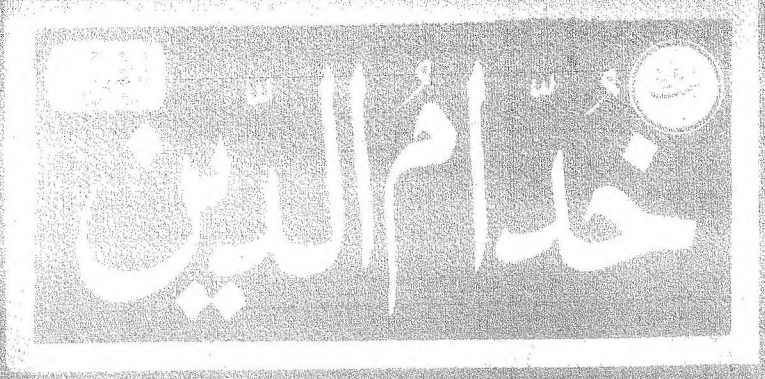 خُدّامُ الدّین